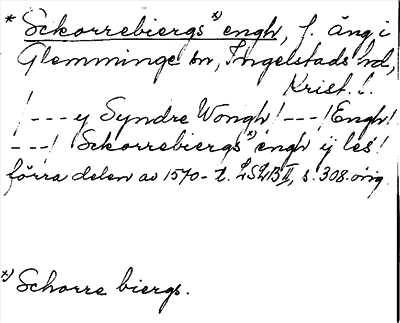 * Sckorrebiergs x) engh, f. äng i
Glemminge sn, Ingelstads hd,
Krist. l.
/--- y Syndre Wongh! ---/ Engh!
---/ Sckorrebiergs x) engh ÿ les!
förra delen av 1570-t. LSLB II, s. 308. orig.
x) Schorre biergs.